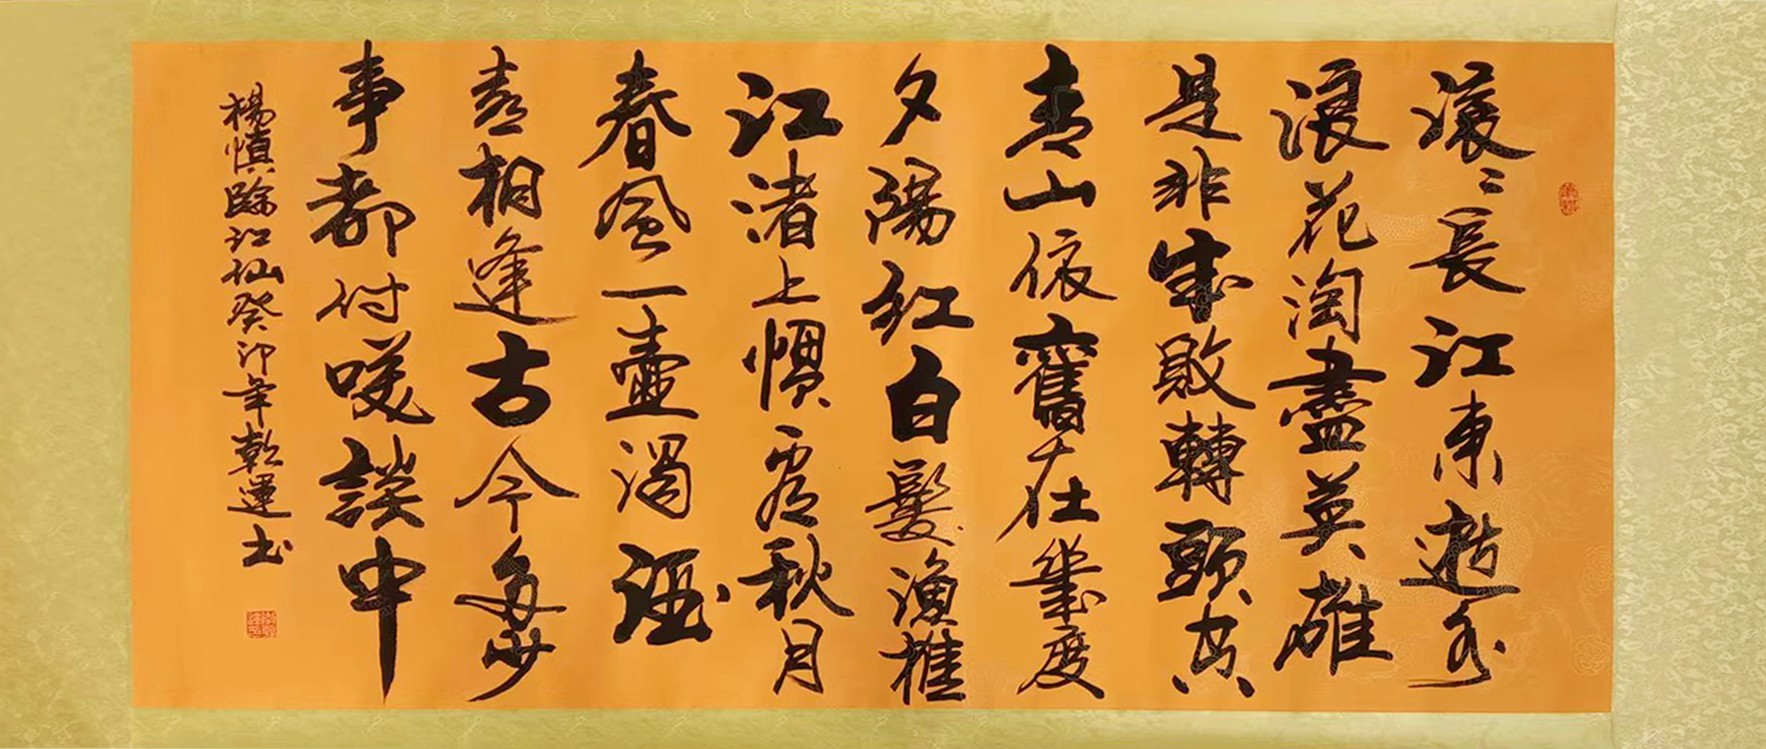 滚〻長江東逝水
浪花淘盡英雄
是非成敗轉頭空
青山依舊在幾度
夕陽紅白髮漁樵
江渚上慣看秋月
春風一壺濁酒
喜相逢古今多少
事都付笑談中
楊慎臨江仙癸卯年乾運書